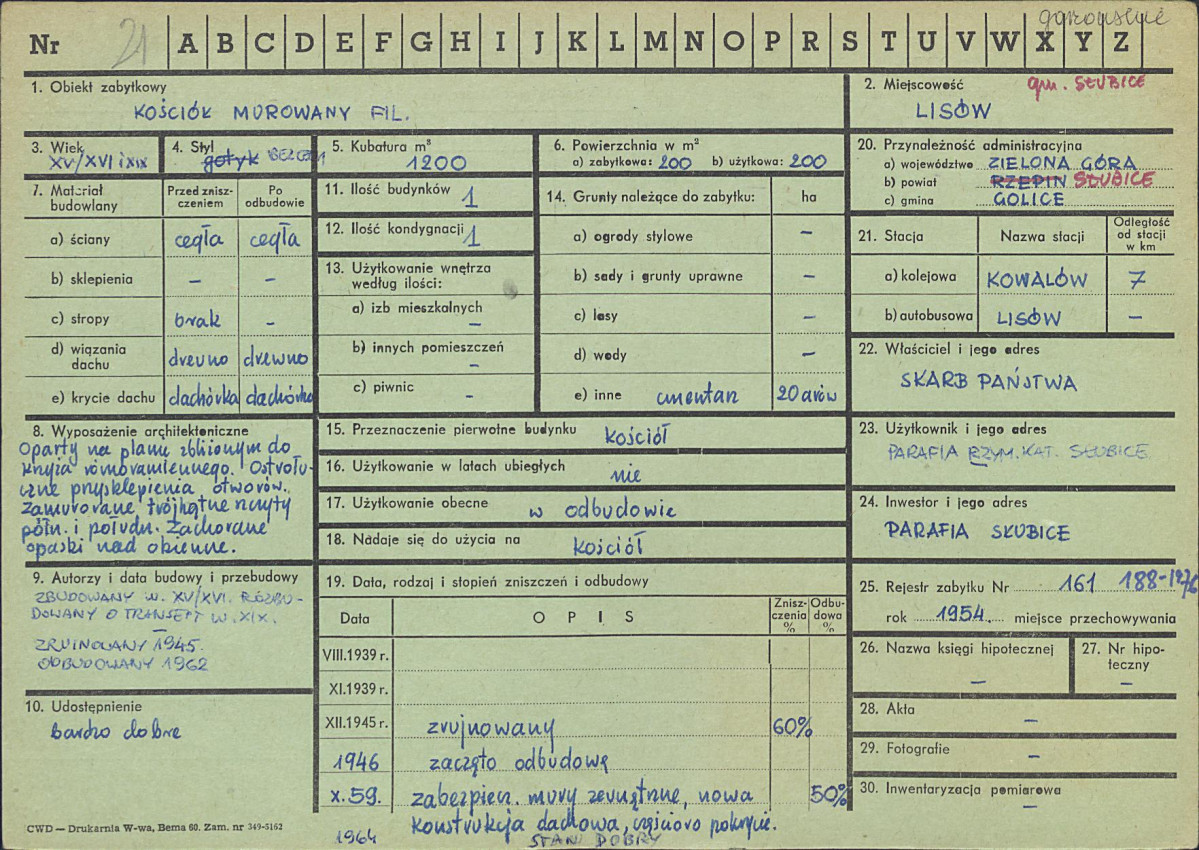 gorzowskie
Nr 21 A B C D E F G H I J K L M N O P R S T U V W X Y Z
1. Obiekt zabytkowy
KOŚCIÓŁ MUROWANY FIL.
2. Miejscowość gm. SŁUBICE
LISÓW
3. Wiek
XV/XVI i XIX
4. Styl
gotyk
5. Kubatura m³
1200
6. Powierzchnia w m²
a) zabytkowa: 200 b) użytkowa: 200
20. Przynależność administracyjna
a) województwo ZIELONA GÓRA
b) powiat RZEPIN SŁUBICE
c) gmina GOLICE
7. Materiał budowlany
Przed zniszczeniem
Po odbudowie
a) ściany cegła cegła
b) sklepienia – –
c) stropy brak –
d) wiązania dachu drewno drewno
e) krycie dachu dachówka dachówka
11. Ilość budynków 1
12. Ilość kondygnacji 1
13. Użytkowanie wnętrza
według ilości:
a) izb mieszkalnych –
b) innych pomieszczeń –
c) piwnic –
14. Grunty należące do zabytku: ha
a) ogrody stylowe –
b) sady i grunty uprawne –
c) lasy –
d) wody –
e) inne cmentarz 20 arów
21. Stacja
Nazwa stacji
Odległość
od stacji
w km
a) kolejowa KOWALÓW 7
b) autobusowa LISÓW –
22. Właściciel i jego adres
SKARB PAŃSTWA
8. Wyposażenie architektoniczne
Oparty na planie zbliżonym do
krzyża równoramiennego. Ostrołu-
czne przysklepienia otworów.
Zamurowane trójkątne szczyty
półn. i połudn. Zachowane
opaski nad okienne.
15. Przeznaczenie pierwotne budynku kościół
16. Użytkowanie w latach ubiegłych nie
17. Użytkowanie obecne w odbudowie
18. Nadaje się do użycia na kościół
23. Użytkownik i jego adres
PARAFIA RZYM. KAT. SŁUBICE
24. Inwestor i jego adres
PARAFIA SŁUBICE
9. Autorzy i data budowy i przebudowy
ZBUDOWANY W. XV/XVI. ROZBU-
DOWANY O TRANSEPT W. XIX.
ZRUJNOWANY 1945.
ODBUDOWANY 1962
10. Udostępnienie
bardzo dobre
19. Data, rodzaj i stopień zniszczeń i odbudowy
Data
O P I S
Znisz-
czenia
%
Odbu-
dowa
%
VIII.1939 r.
XI.1939 r.
XII.1945 r. zrujnowany 60%
1946 zaczęto odbudowę
X.59. zabezpiecz. mury zewnątrzne, nowa 50%
konstrukcja dachowa, częściowo pokrycie.
1964 STAN DOBRY
25. Rejestr zabytku Nr 161 188-1276
rok 1954. miejsce przechowywania
26. Nazwa księgi hipotecznej
–
27. Nr hipo-
teczny
–
28. Akta –
29. Fotografie –
30. Inwentaryzacja pomiarowa
–
CWD — Drukarnia W-wa, Bema 60. Zam. nr 349-5162